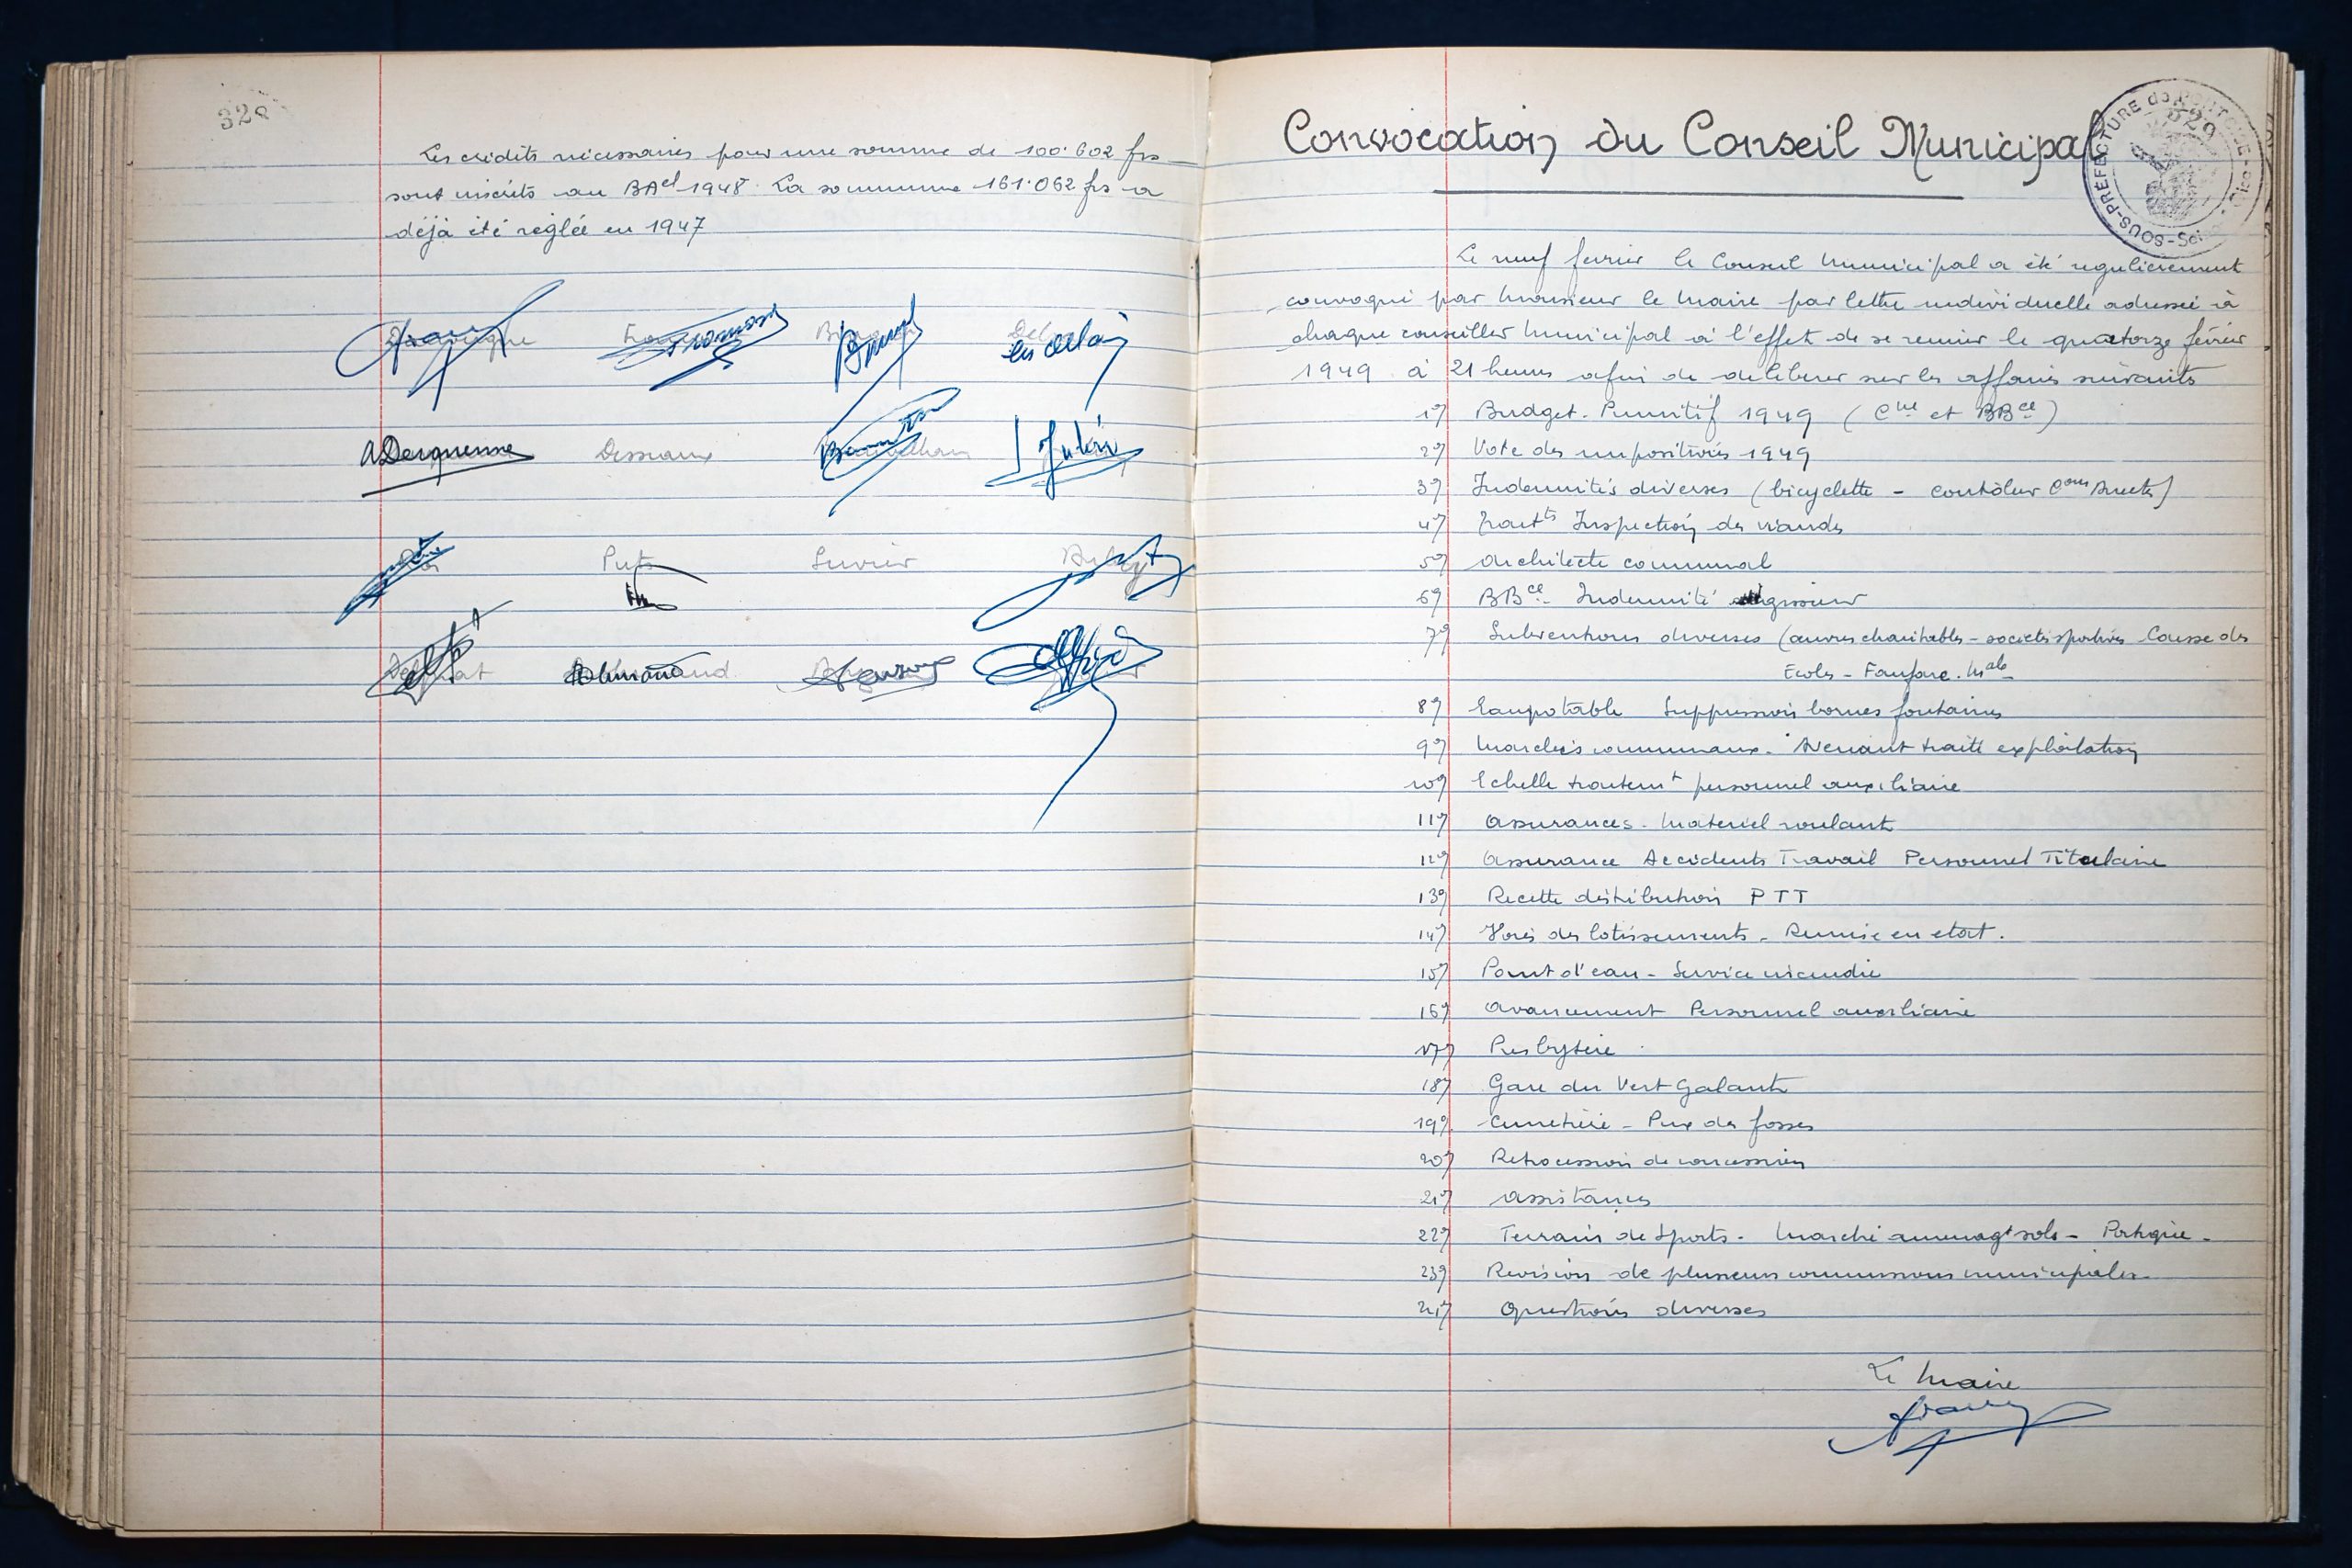 328
Les crédits nécessaires pour une somme de 100.602 frs
sont inscrits au BAel 1948. La somme 161.062 frs a
déjà été réglée en 1947
Dessaux
ADerquenne
Puts
Servier
Convocation du Conseil Municipal
SOUS-PRÉFECTURE de PONTOISE
329
Le neuf février le Conseil Municipal a été regulièrement
convoqué par Monsieur le Maire par lettre individuelle adressée à
chaque conseiller Municipal à l'effet de se reunir le quatorze février
1949 à 21 heures afin de deliberer sur les affaires suivants
1°) Budget Primitif 1949 (Cne et BBce)
2°) Vote des impositions 1949
3°) Indemnités diverses (bicyclette - contrôleur Cons Directes)
4°) Trait ts Inspection des viandes
5°) Architecte communal
6°) BBce Indemnité régisseur
7°) Subventions diverses (œuvres charitables - sociétés sportives Caisse des
Ecoles - Fanfare. Male
8°) Eau potable Suppression bornes fontaines
9°) Marchés communaux. Avenant traité exploitation
10°) Echelle traitemt personnel auxiliaire
11°) Assurances - Materiel roulant
12°) Assurance Accidents Travail Personnel Titulaire
13°) Recette distribution PTT
14°) Voies des lotissements - Remise en etat.
15°) Point d'eau - Service incendie
16°) Avancement Personnel auxiliaire
17°) Presbytère
18°) Gare du Vert Galant
19°) Cimetière - Prix des fosses
20°) Retrocession de concession
21°) Assistances
22°) Terrain de Sports - Marché amenagt sols - Portique -
23°) Revision de plusieurs commissions municipales
24°) Questions diverses
Le Maire